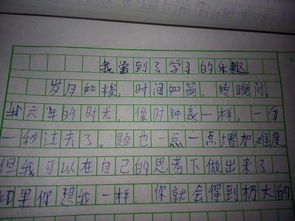 我尝到了学习的乐趣
岁月如梭,时间如箭,转眼间
六年的时光,像时钟表一样,一分
一秒过去了。题也一点一点增加难度
但我可以在自己的思考下做出来了,
如果你想我一样,你就会得到极大的